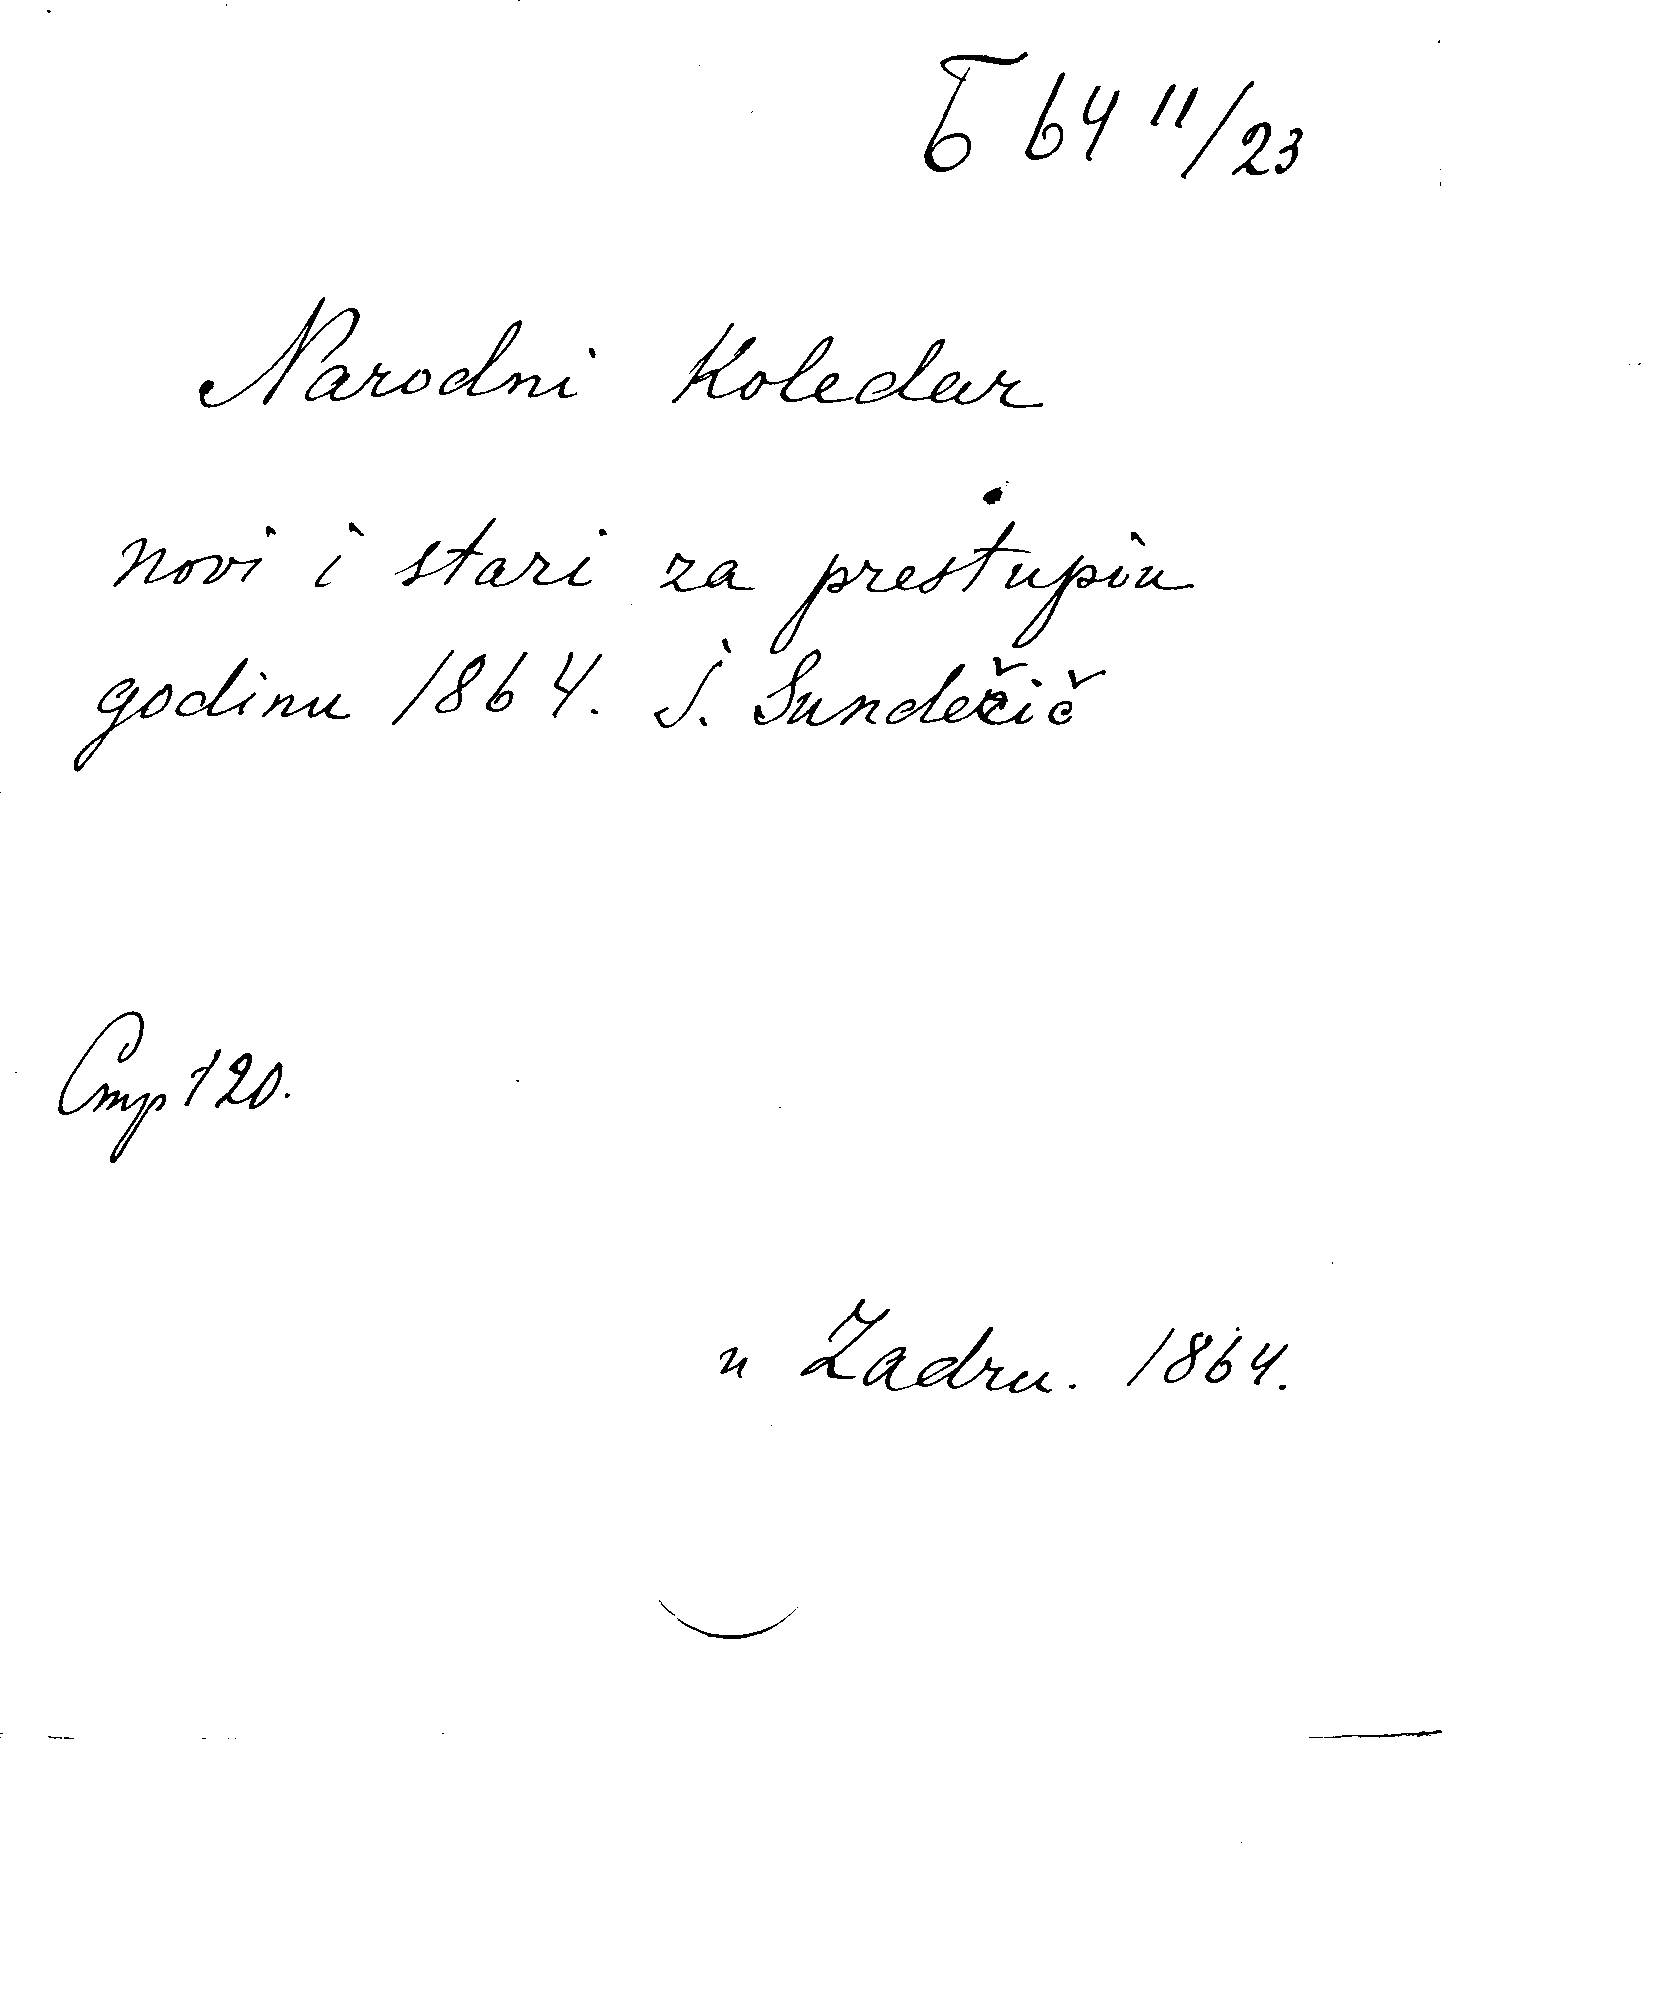 Б 64 11/23
Narodni Koledar
novi i stari za prestupiu
godinu 1864. I. Sundečič
Стр 120.
u Zadru. 1864.